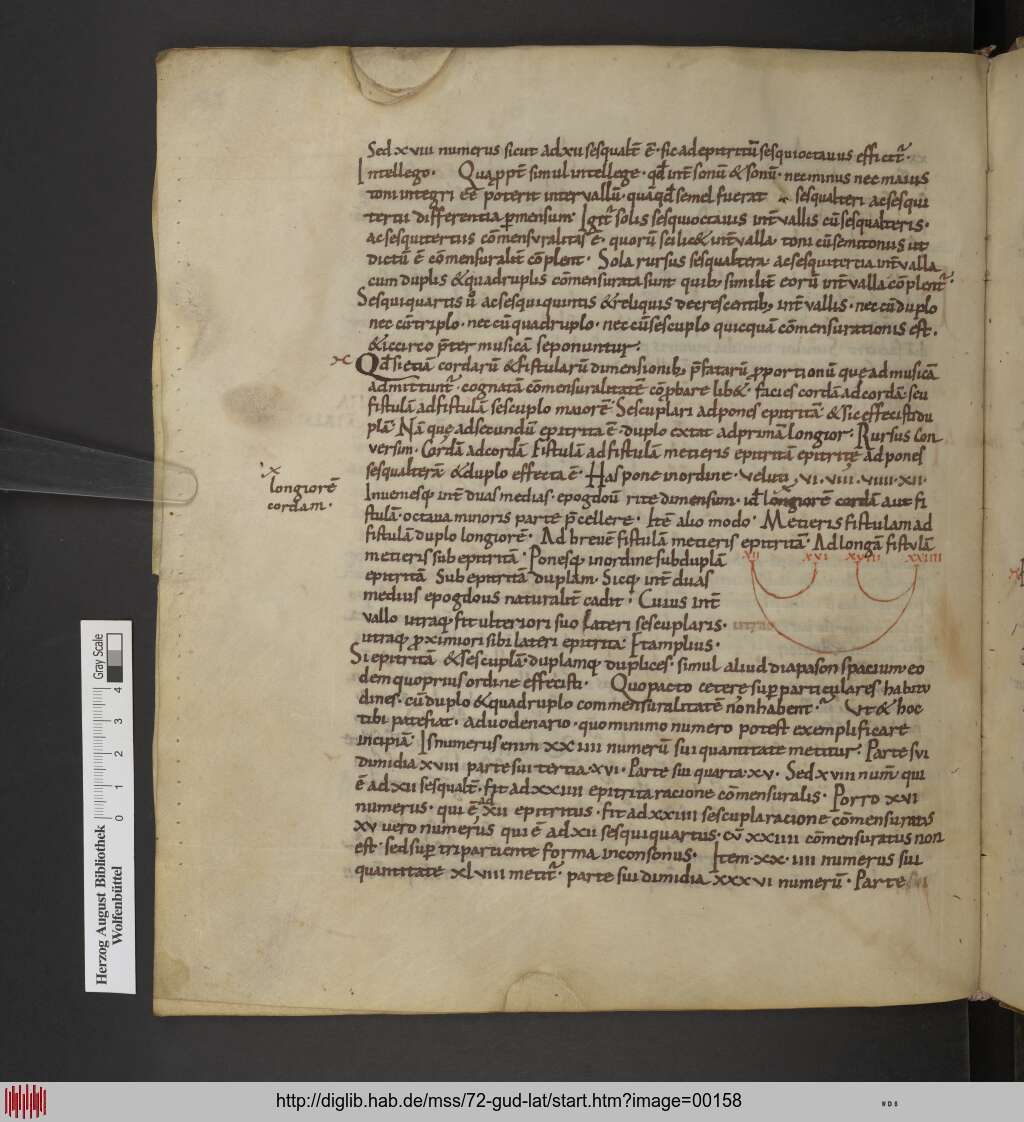 Sed xviii numerus sicut ad xii sesqualt̄ ē · sic ad epitritū sesquioctavus efficit᷑ ·
Intellego · Quapp̄t simul intellege · qd̄ int̄ sonū & sonū · nec minus nec maius
toni integri eē poterit intervallū · quāqd̄ semel fuerat sesqualteri ac sesqui
tertii differentia p̄mensum · Igit᷑ solis sesquioctavis int̄vallis cū sesqualteris ·
ac sesquitertiis cōmensuralitas ē · quorū scilic& int̄valla · toni cū semitoniis ut
dictū ē cōmensuralit̄ cōplent · Sola rursus sesqualtera · ac sesquitertia int̄valla
cum duplis & quadruplis cōmensurata sunt quib; similit̄ eorū int̄valla cōplent᷑ ·
Sesquiquartis ū ac sesquiquintis & reliquis decrescentib; int̄vallis · nec cū duplo
nec cū triplo · nec cū quadruplo · nec cū sescuplo quicquā cōmensurationis est ·
& iccirco p̄ter musicā seponuntur ·
Qd̄ si etiā cordarū & fistularū dimensionib; p̄fatarū proportionū que ad musicā
admittunt᷑ · cognatā cōmensuralitatē cōprobare lib& · facies cordā ad cordā · seu
fistulā ad fistulā sescuplo maiorē · Sescuplari adpones epitritā & sic effecisti du
plā · Nā que ad secundū epitrita ē · duplo extat ad primā longior · Rursus con
versim · Cordā ad cordā Fistulā ad fistulā metieris epitritā epitrite adpones
sesqualterā & duplo effecta ē · Has pone in ordine · veluti · vi · viii · viiii · xii ·
Inveniesq; int̄ duas medias · epogdoū rite dimensum · id longiorē cordā aut fi
stulā · octava minoris parte p̄cellere · Itē alio modo · Metieris fistulam ad
fistulā duplo longiorē · Ad brevē fistulā metieris epitritā · Ad longā fistulā
metieris subepitritā · Ponesq; in ordine subduplā
epitritā Subepitritā duplam · Sicq; int̄ duas
medius epogdous naturalit̄ cadit · Cuius int̄
vallo utraq; fit ulteriori suo lateri sescuplaris ·
utraq; proximiori sibi lateri epitrita · Et amplius ·
Si epitritā & sescuplā · duplamq; duplices · simul aliud diapason spacium eo
dem quo prius ordine effecisti · Quo pacto cetere sup̄particulares habitu
dines · cū duplo & quadruplo commensuralitatē non habent · Ut & hoc
tibi patefiat · a duodenario · quo minimo numero potest exemplificare
incipiā · Is numerus enim xxiiii numerū sui quantitate metitur · Parte sui
dimidia xviii parte sui tertia · xvi · Parte sui quarta · xv · Sed xviii num̄ qui
ē ad xii sesqualt̄ · fit ad xxiiii epitrita racione cōmensuralis · Porro xvi
numerus · qui ē ad xii epitritus · fit ad xxiiii sescupla racione cōmensuratus
xv vero numerus qui ē ad xii sesquiquartus · cū xxiiii cōmensuratus non
est · sed sup̄tripartiente forma inconsonus · Item · xx · iiii numerus sui
quantitate xlviii metit᷑ · parte sui dimidia xxxvi numerū · Parte sui
longiorē
cordam ·
xii xvi xviii xxiiii
Herzog August Bibliothek
Wolfenbüttel
0 1 2 3 4
Gray Scale
http://diglib.hab.de/mss/72-gud-lat/start.htm?image=00158